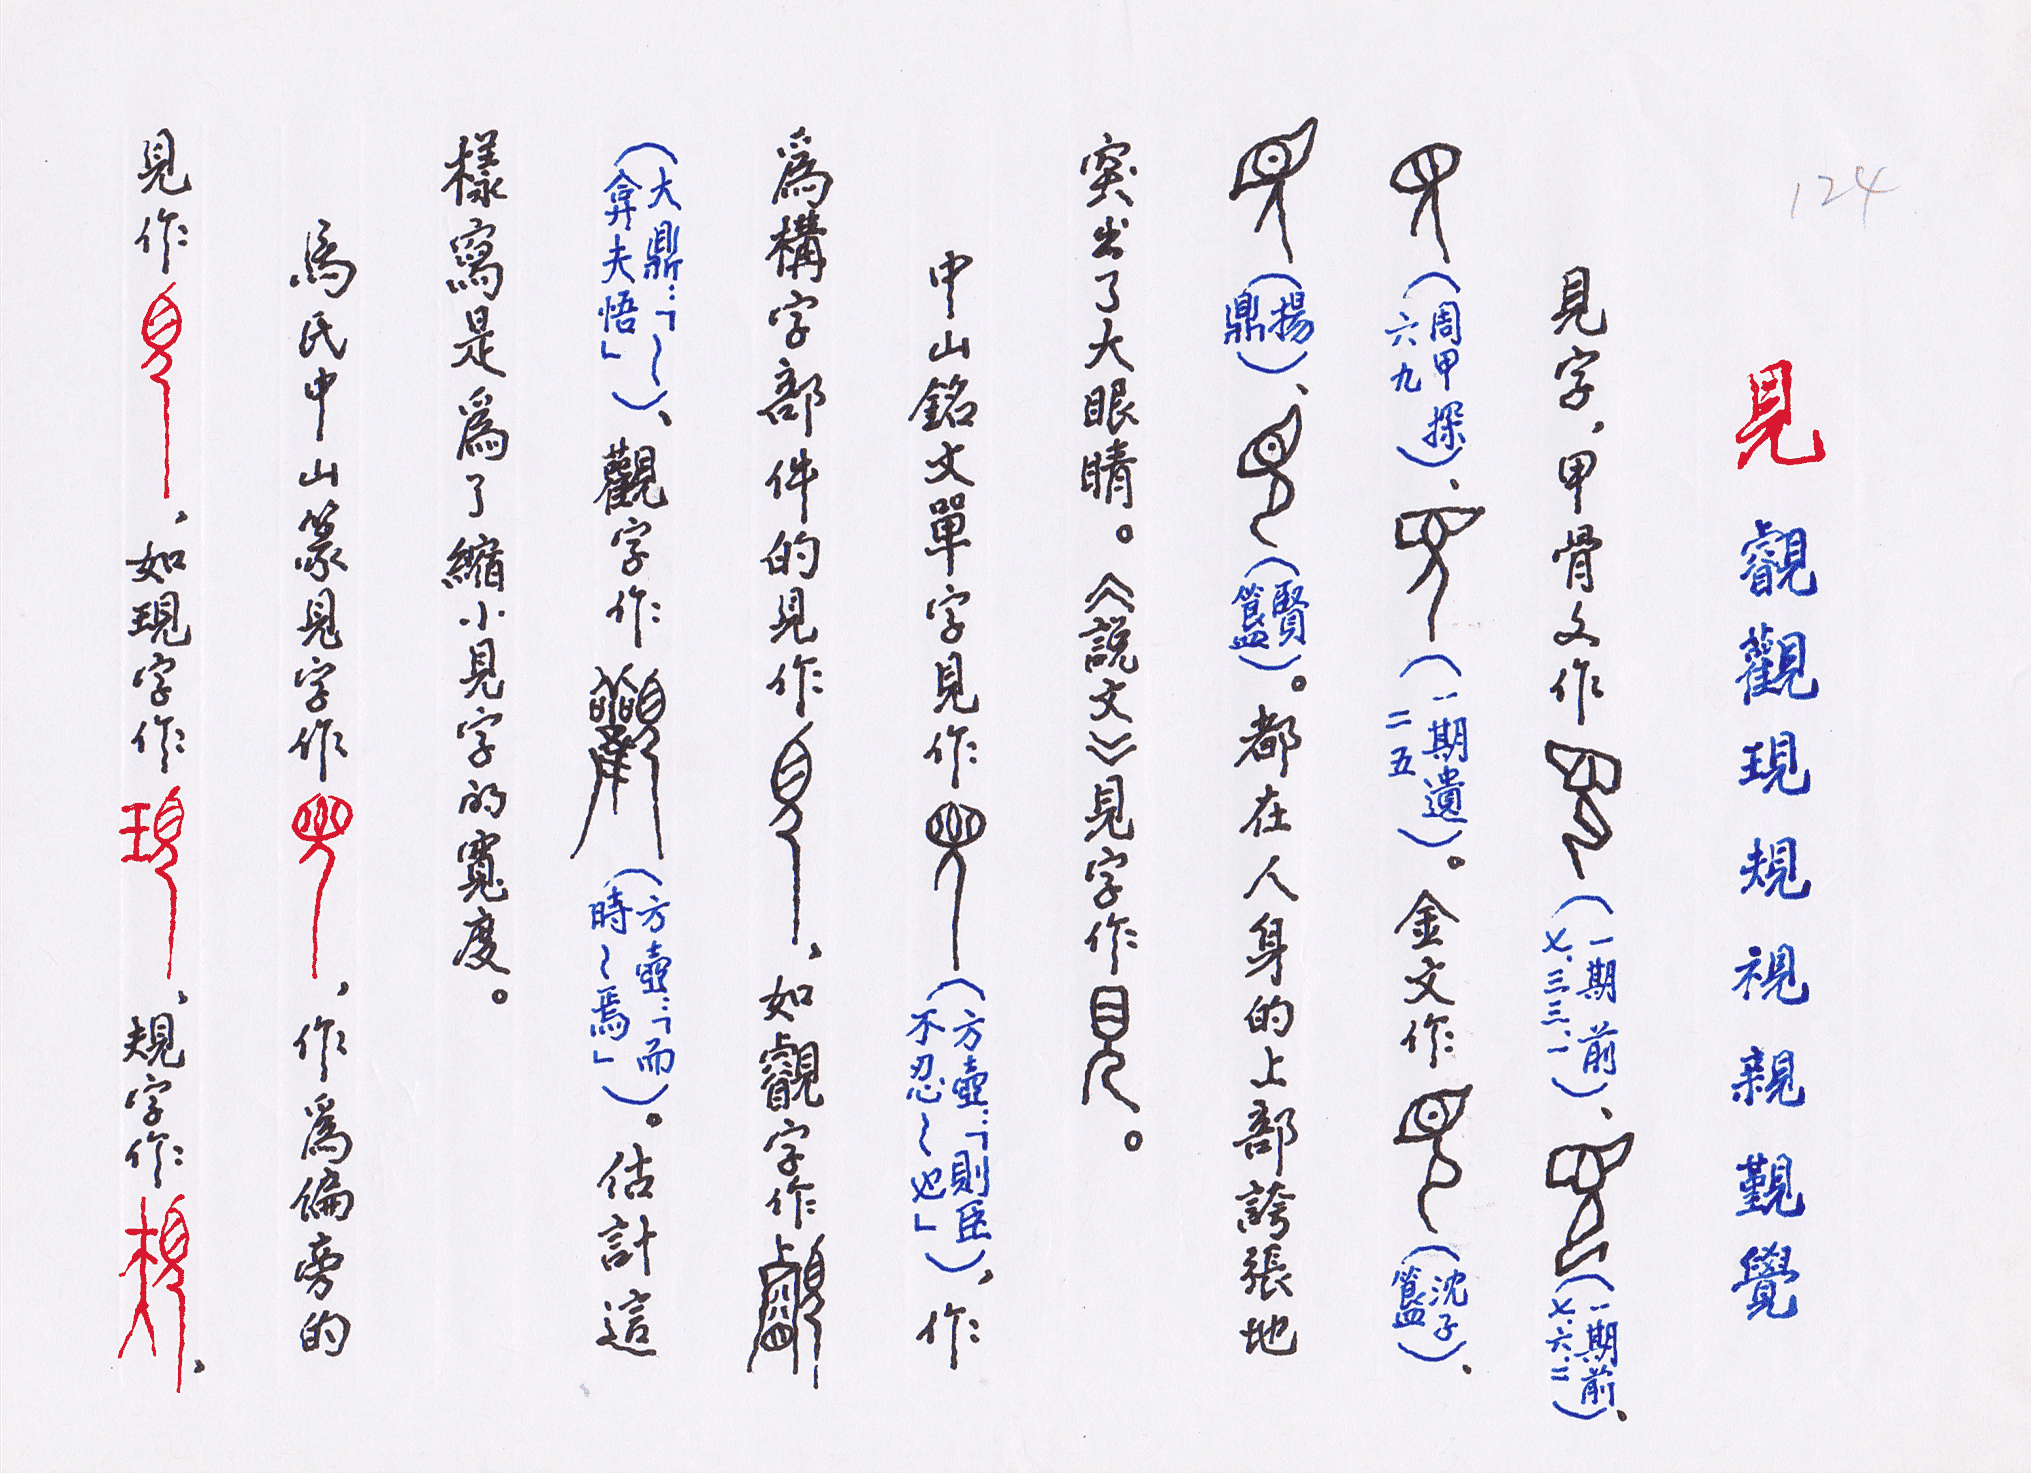 124
見 觀現規視親覲覺
見字，甲骨文作（一期前七.三三.一）、（一期前七.六.二）、
（周甲探六九）、（一期遺二五）。金文作（沈子簋）、
（揚鼎）、（賢簋）。都在人身的上部誇張地
突出了大眼睛。《説文》見字作。
中山銘文單字見作（方壺：「則臣不忍～也」），作
爲構字部件的見作，如字作
（大鼎：「～弇夫悟」）、觀字作（方壺：「而時～焉」）。估計這
樣寫是爲了縮小見字的寬度。
馬氏中山篆見字作，作爲偏旁的
見作，如現字作，規字作，